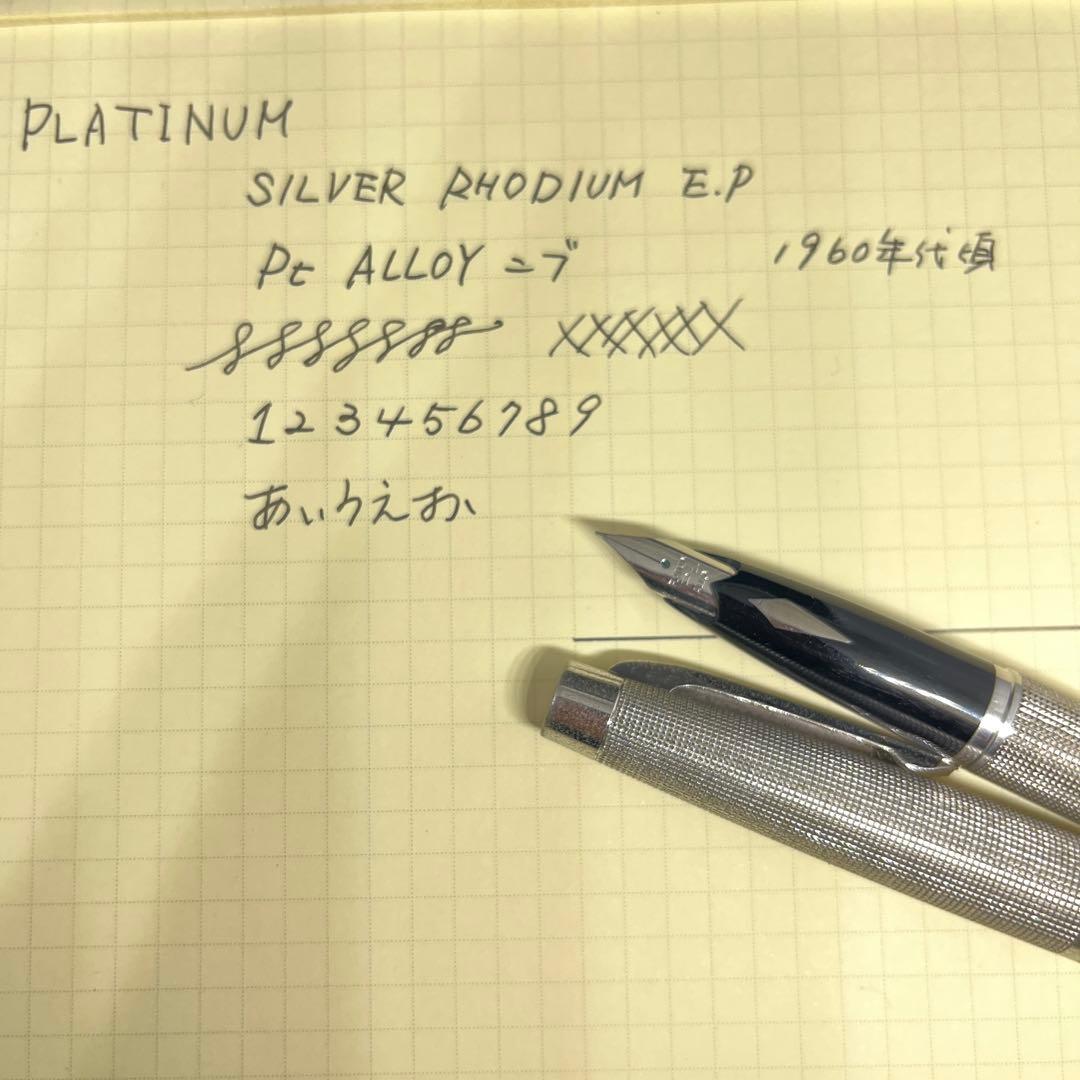 PLATINUM
SILVER RHODIUM E.P
Pt ALLOY ニブ 1960年代頃
123456789
あいうえお